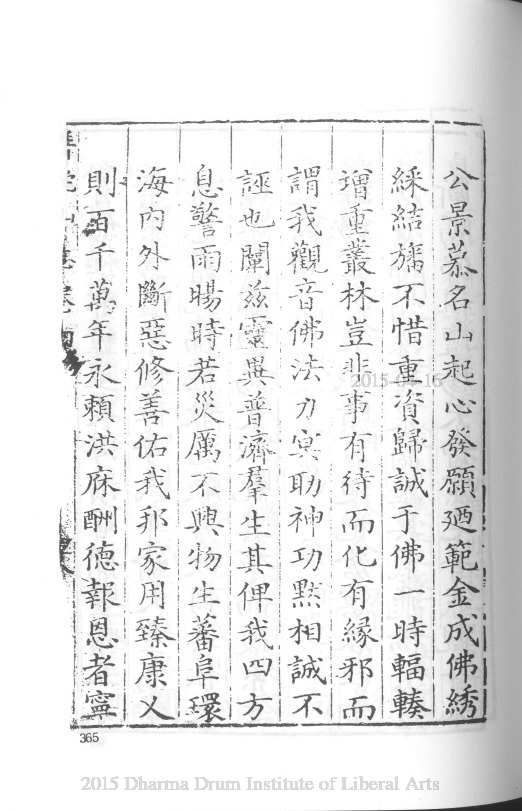 公景慕名山起心發願廼範金成佛綉
綵結旛不惜重資歸誠于佛一時輻輳
增重叢林豈非事有待而化有緣邪而
謂我觀音佛法力冥助神功黙相誠不
誣也闡兹靈異普濟羣生其俾我四方
息警雨暘時若災厲不興物生蕃阜環
海內外斷惡修善佑我邦家用臻康乂
則百千萬年永頼洪庥酬德報恩者寧
365
2015-04-16
2015 Dharma Drum Institute of Liberal Arts